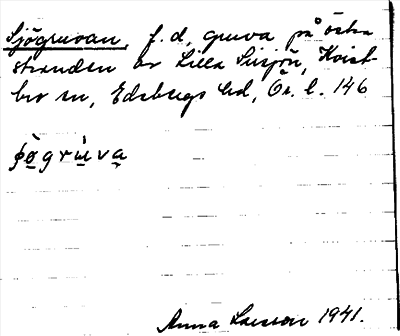 Sjögruvan, f. d. gruva på östra
stranden av Lilla Sissjön, Kvist-
bro sn, Edsbergs hd, Ör. l. 146
Anna Larsson 1941.